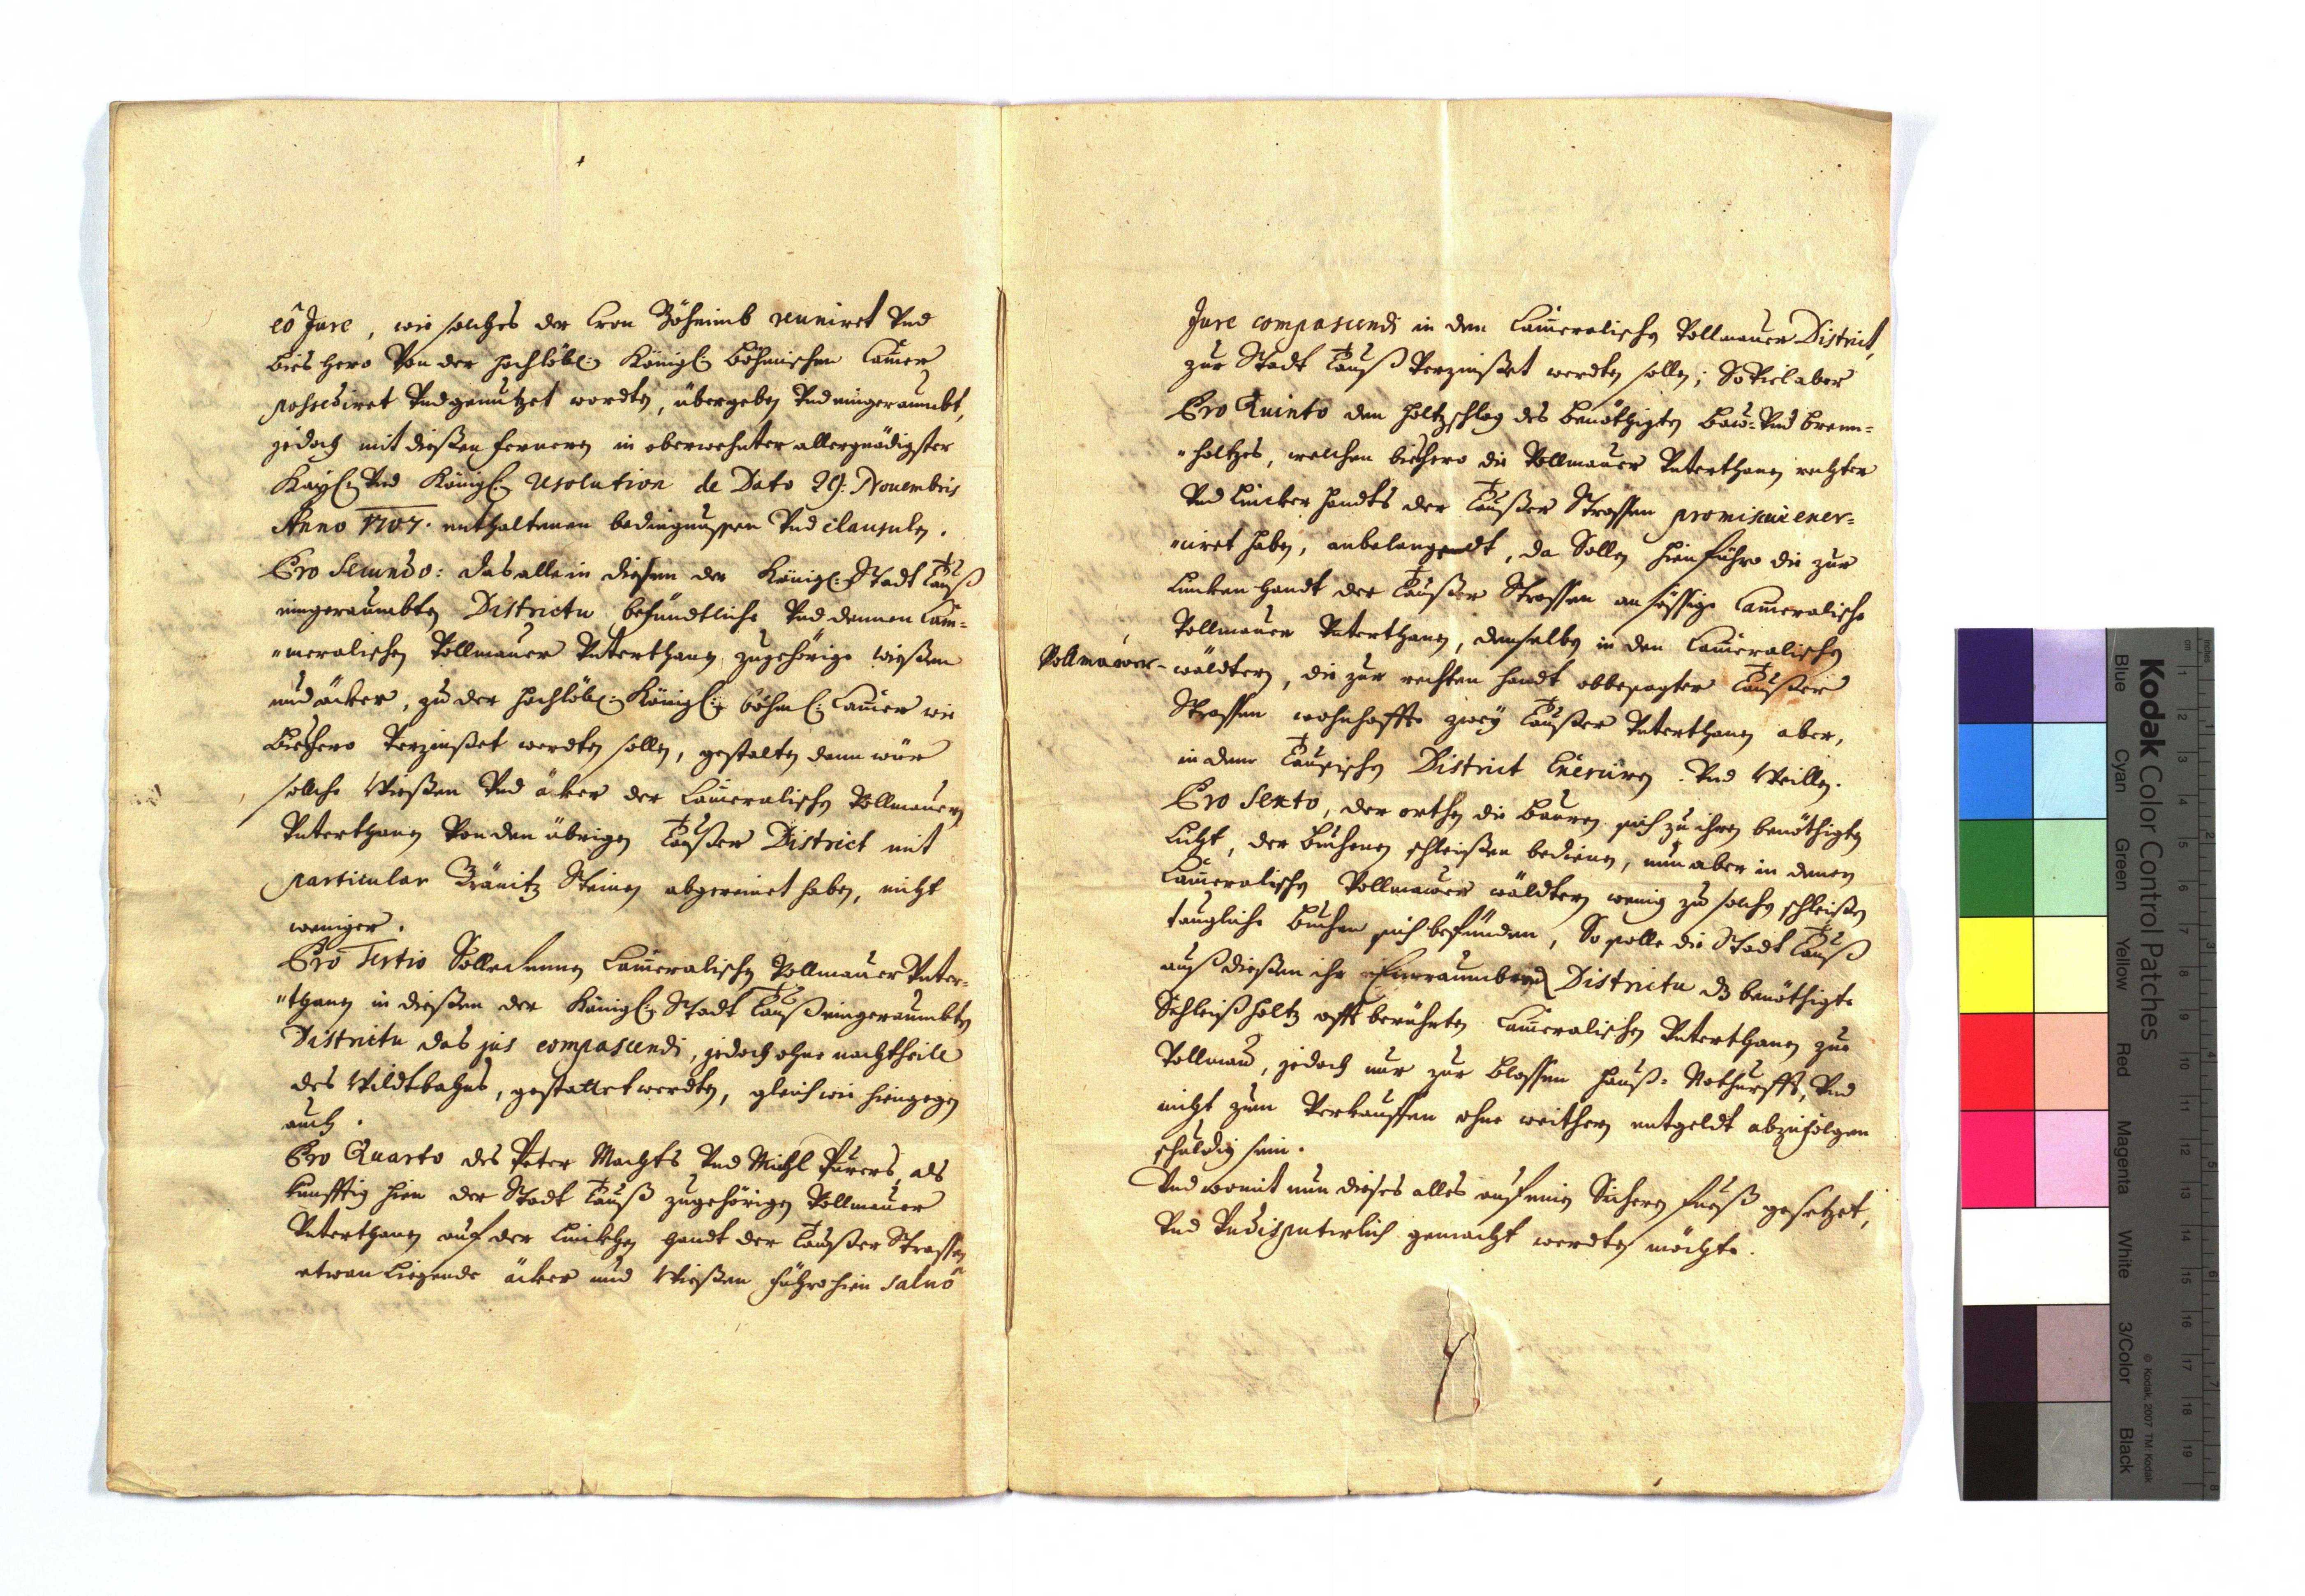 eô Jure, wie solches der Cron Böheimb reuniret Vnd
bies hero Von der hochlöbl: Königl: Böhmischen Cammer
possediret Vnd genutzet wordten, übergeben Vnd eingeraumbt,
jedoch mit dießen ferneren in oberwehnter allergnädigster
Kayl: Vnd Königl: resolution de Dato 29: Novembris
Anno 1707. enthaltenen bedingnussen Vnd clausulen.
Pro Secundo: das alle in diesem der Königl: Stadt Tauß
eingeraumbten Districtu befündtliche Vnd denenen Cam-
"meralischen Vollmauer Vnterthanen zugehörige wießen
und äcker, zu der Hochlöbl: Königl: böhml: Cammer wie
bießhero Verzinßet werdten sollen, gestalten dann wür
solche Wießen Vnd äcker der Cammeralischen Vollmauern
Vnterthanen Von den übrigen Taußer District mit
particular Gränitz Steinen abgereinet haben, nicht
weniger.
Pro Tertio Sollen denen Cammeralischen Vollmauer Vnter-
"thanen in dießem der Königl: Stadt Tauß eingeraumbten
Districtu das jus compascendi, jedoch ohne nachtheill
des Wildtbahns, gestattet werdten, gleich wie hiengegen
auch.
Pro Quarto des Peter Machts Vnd Michl Pürers, als
künfftig hien der Stadt Tauß zugehörigen Vollmauer
Vnterthanen auf der Lincken handt der Taußer Strassen
etwan Liegende äcker und Wießen führohien salvô
Jure compascendi in dem Cammeralischen Vollmauer District,
zur Stadt Tauß Verzinßet werdten sollen; So Viel aber
Pro Quinto den holtzschlag des benöthigten Baw- Vnd brenn-
"holtzes, welchen bießhero die Vollmauer Vnterthanen rechter
Vnd Lincker handts der Taußer Strassen promiscui exer-
"ciret haben, anbelangendt, da Sollen hienführo die zur
Lincken handt der Taußer Strassen ansässige Cammeralische
Vollmauer Vnterthanen, denselben in den Cammeralischen
Vollmawer- wäldtern, die zur rechten handt obbesagter Taußer
Strassen wohnhaffte zwey Taußer Vnterthanen aber,
in dem Tausischen District Exerciren. Vnd Weillen.
Pro Sexto, der orthen die Bauren sich zu ihren benöthigten
Licht, der Buchenen schleißen bedienen, nun aber in denen
Cammeralischen Vollmawer wäldtern wenig zu solchen schleißen
taugliche Buchen sich befünden, So solle die Stadt Tauß
auß dießem ihr Einraumbend Districtu dz benöthigte
Schleißholtz offt berührten Cammeralischen Vnterthanen zu
Vollmau, jedoch nur zur blossen Hauß-Nothurfft, Vnd
nicht zum Verkauffen ohne weithern entgeldt abzufolgen
schuldig sein.
Vnd womit nun dieses alles auf einen Sichern fueß gesetzet,
Vnd Vndisputirlich gemacht werdten möchte.
Kodak Color Control Patches
Blue Cyan Green Yellow Red Magenta White 3/Color Black
© Kodak, 2007 TM: Kodak
inches 1 2 3 4 5 6 7 8
cm 1 2 3 4 5 6 7 8 9 10 11 12 13 14 15 16 17 18 19